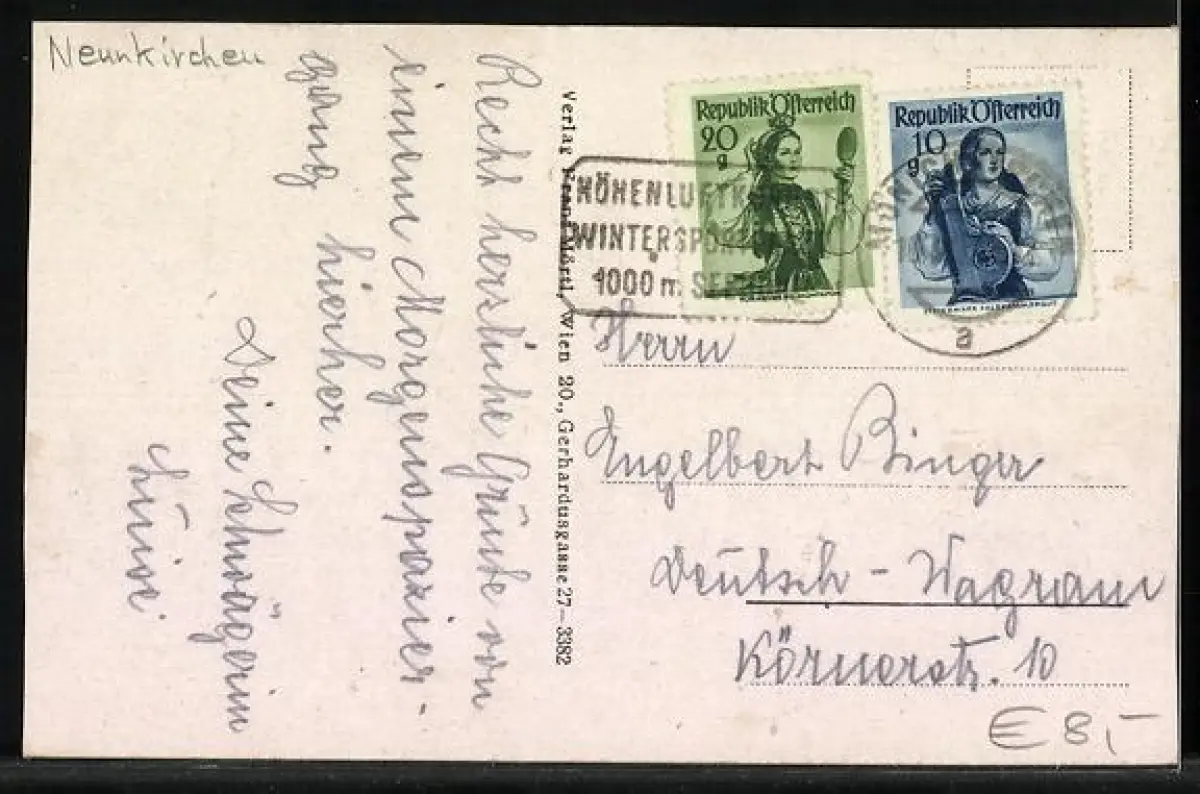 Neunkirchen
Recht herzliche Grüße von
einem Morgenspazier-
gang hierher.
Deine Schwägerin
Luisi
Verlag Mörtl, Wien 20., Gerhardusgasse 27—3382
Republik Österreich
20
g
Republik Österreich
10
g
HÖHENLUFTK
WINTERSPOR
1000 m SEE
a
Herrn
Engelbert Binger
Deutsch - Wagram
Körnerstr. 10
€ 8,-